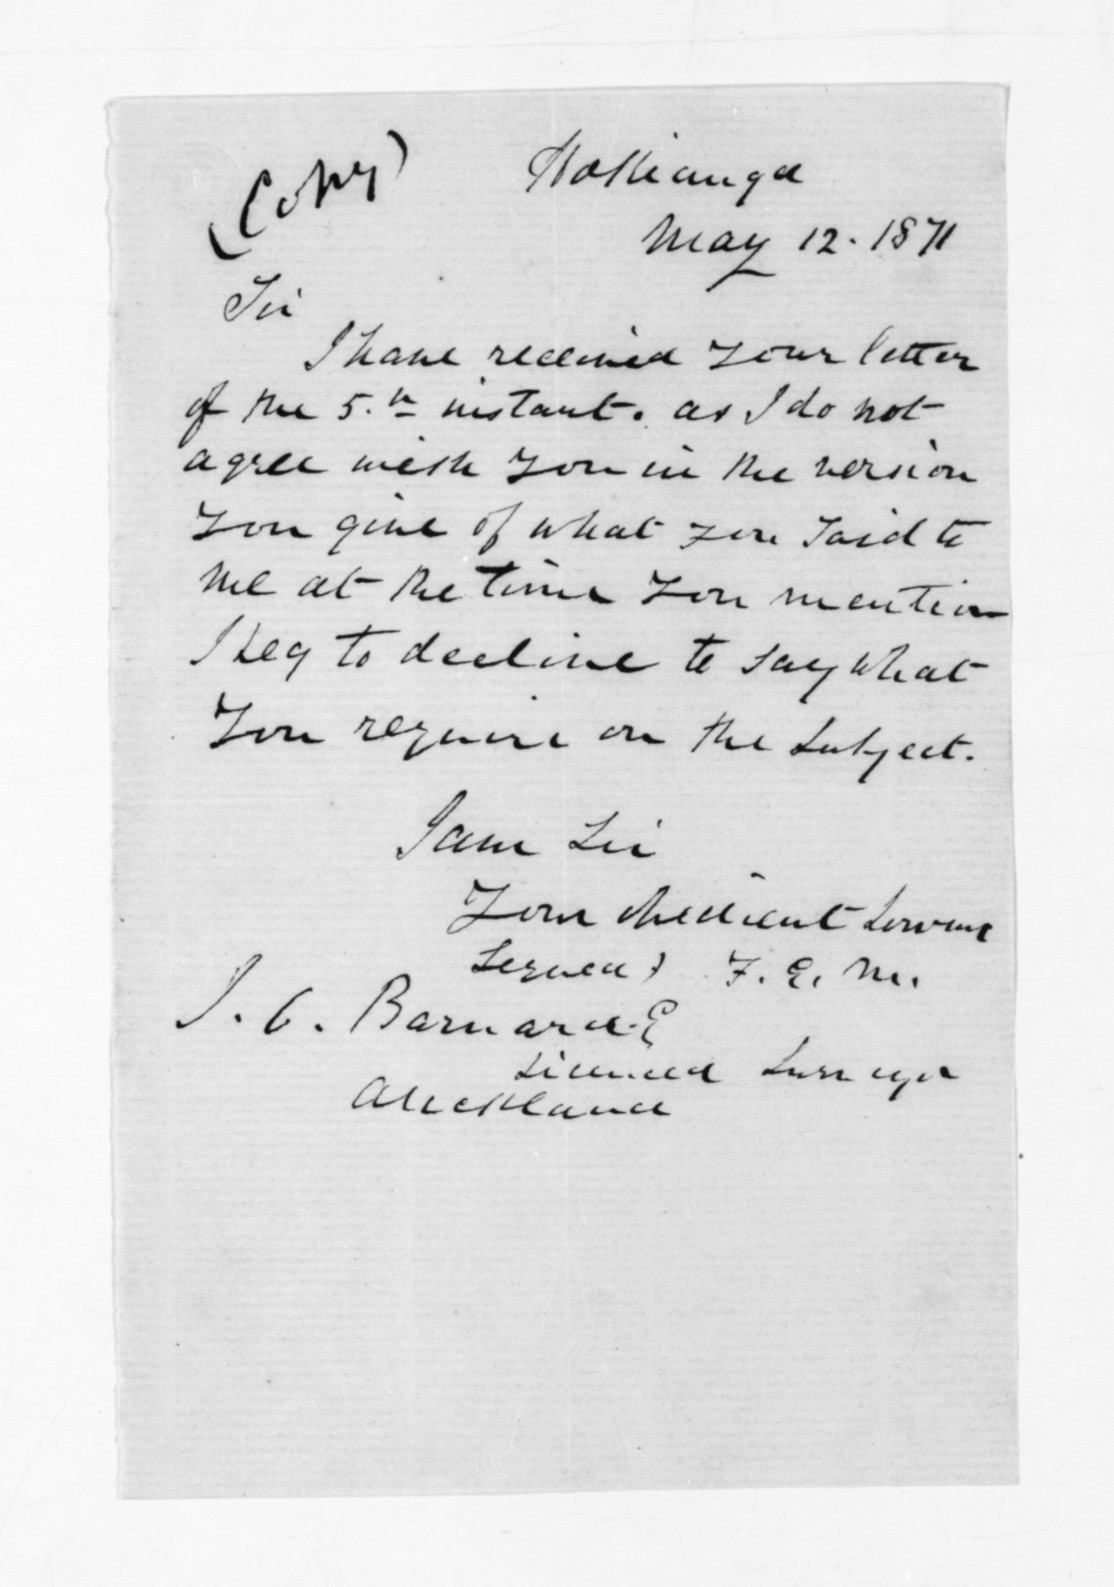 (Copy)
Hokianga
May 12. 1871
Sir
I have received your letter
of the 5.th instant. as I do not
agree with you in the version
you give of what you said to
me at the time you mention
I beg to decline to say what
you require on the subject.
I am Sir
Your obedient Servant
Signed) F. E. M.
J. C. Barnard E
Licensed Surveyor
Auckland